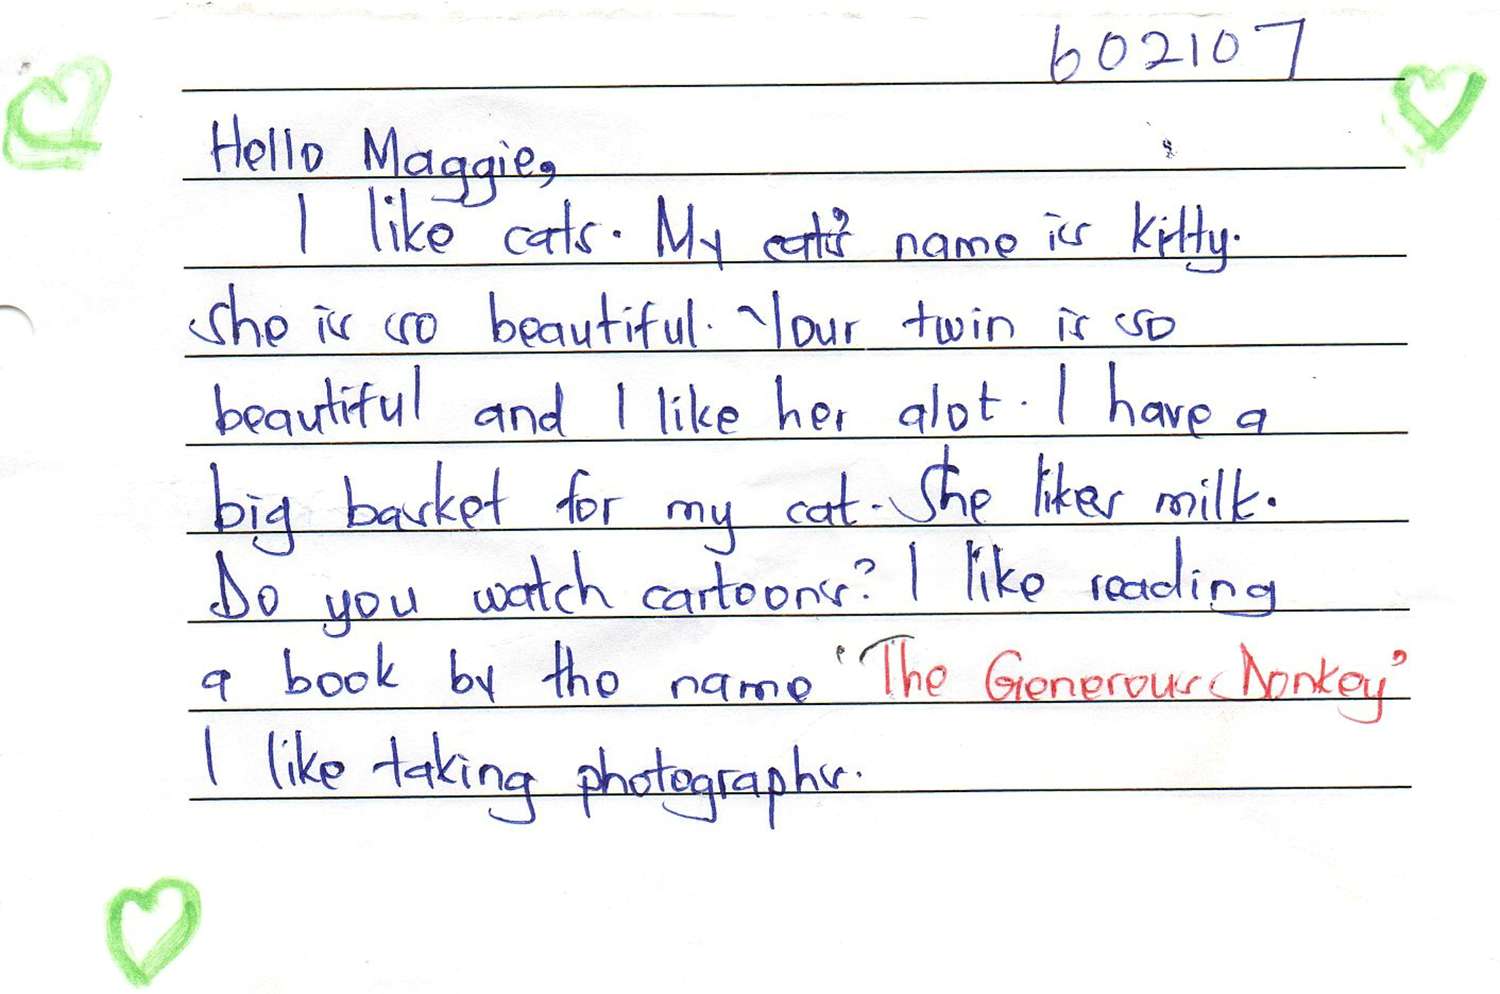 602107
Hello Maggie,
I like cats. My cat's name is kitty.
She is so beautiful. Your twin is so
beautiful and I like her alot. I have a
big basket for my cat. She likes milk.
Do you watch cartoons? I like reading
a book by the name "The Generous Donkey"
I like taking photographs.